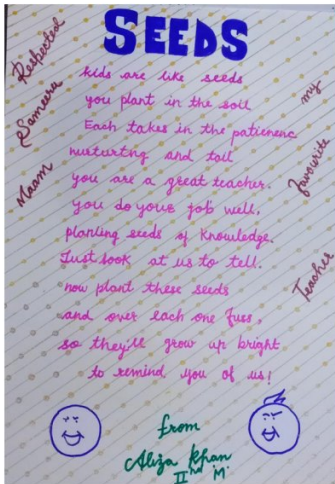 SEEDS
Respected
Sameera
Maam
my
favourite
Teacher
kids are like seeds
you plant in the soil
Each takes in the patienenc
nurturtng and tail
you are a great teacher.
you do your job well,
planting seeds of Knowledge.
Just look at us to tell.
now plant these seeds
and over each one fuss,
so they'll grow up bright
to remind you of us!
from
Aliza Khan
IInd 'M'